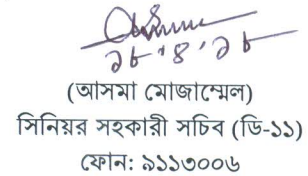 ২৮.৪.২৮
(আসমা মোজাম্মেল)
সিনিয়র সহকারী সচিব (ডি-১১)
ফোন: ৯১১৩০০৬